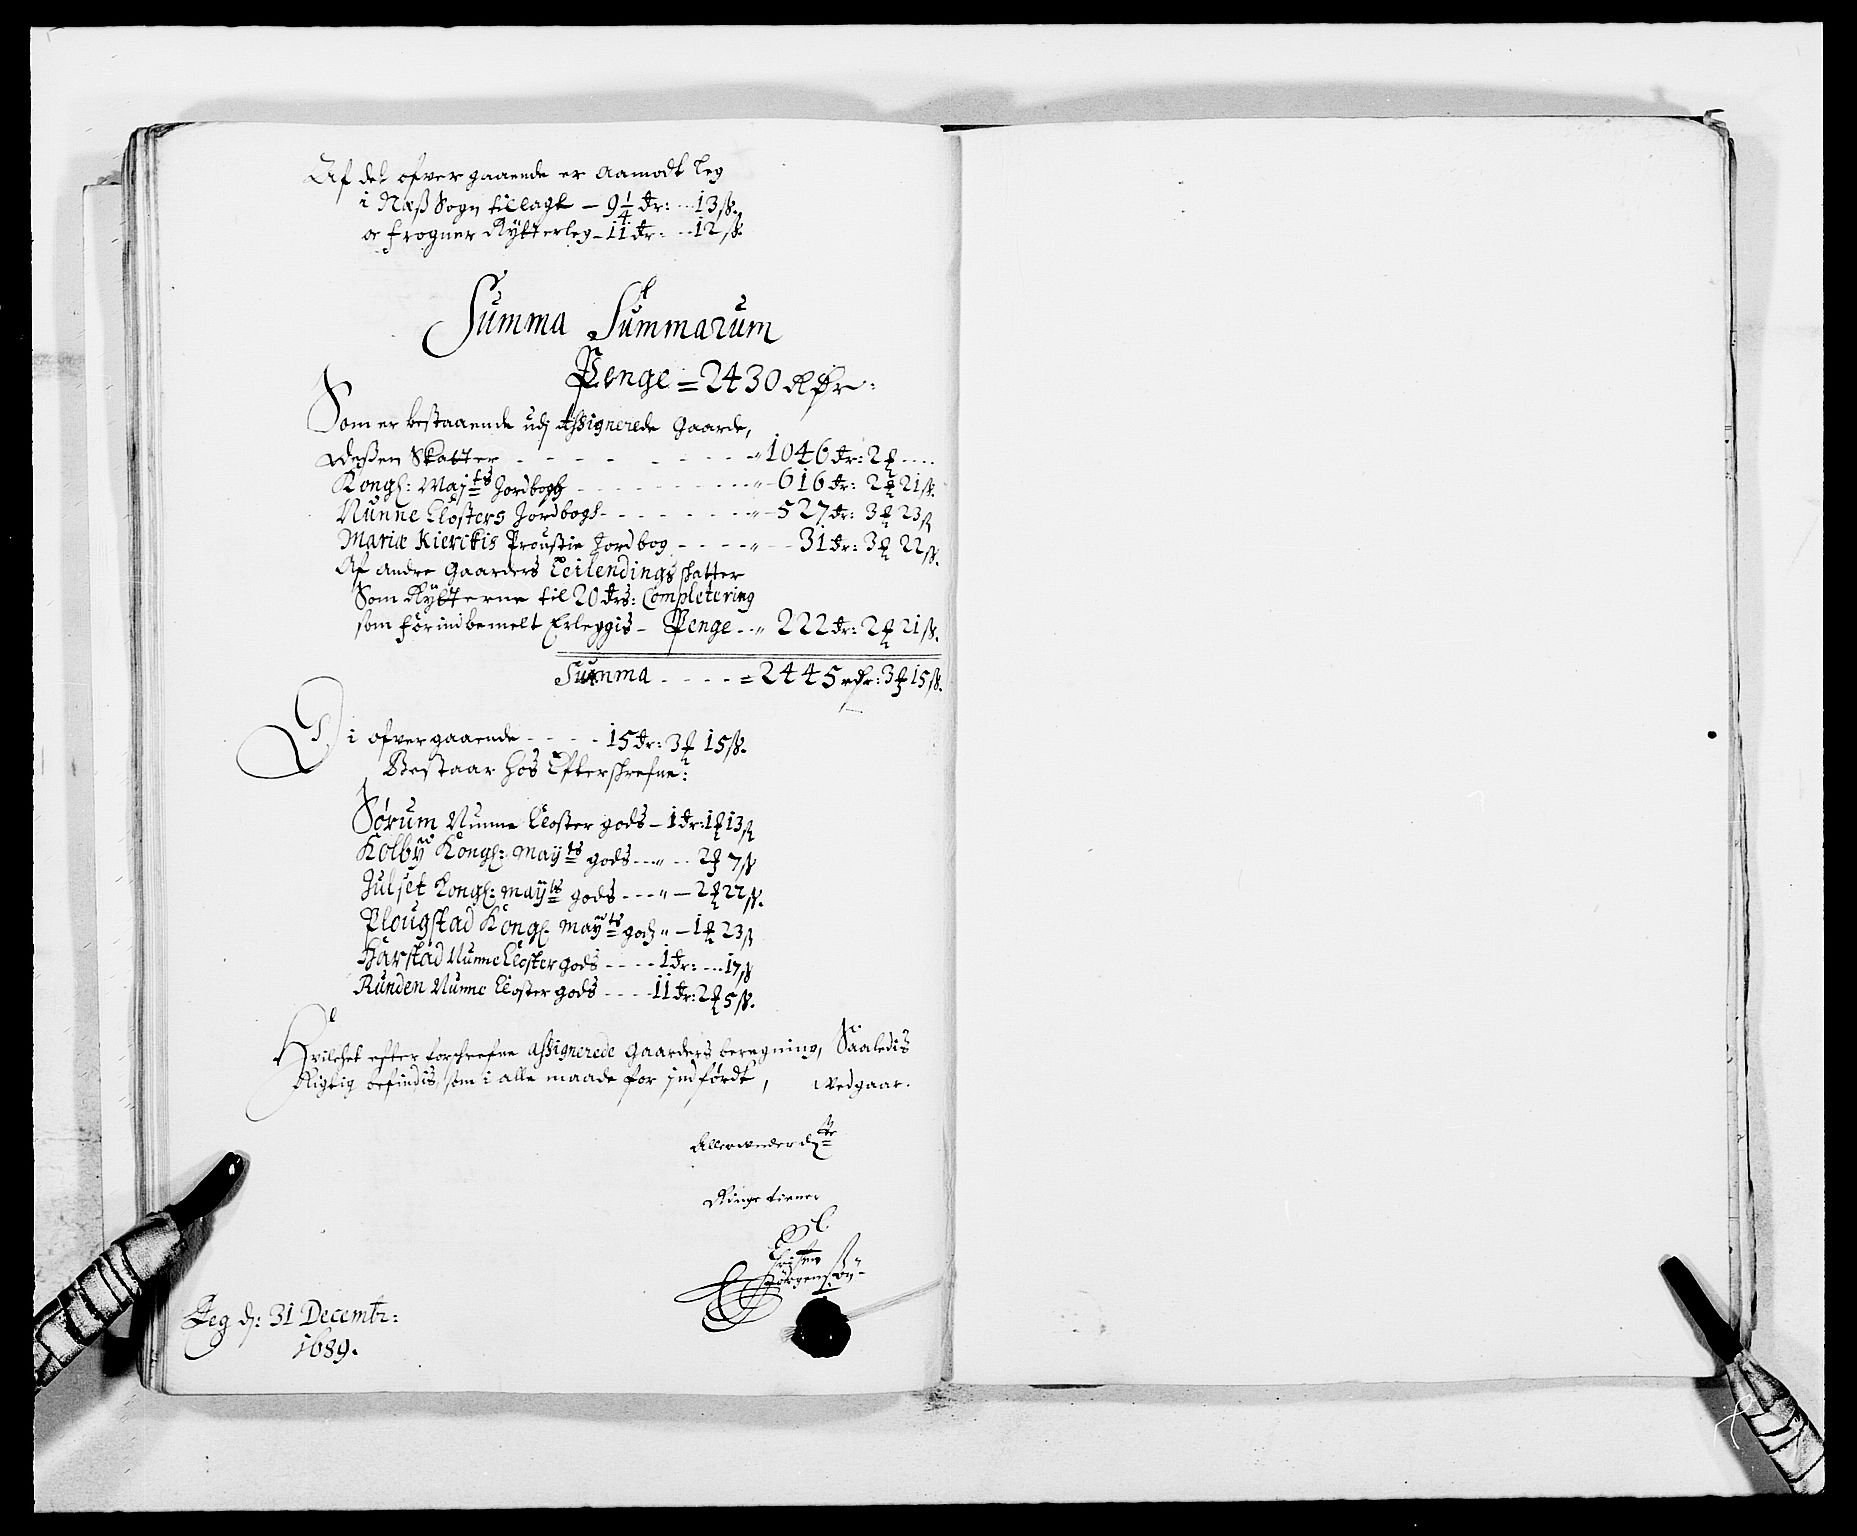 Af det ofvergaaende er Aamodt leg
i Næss Sogn tillagt – 9 1/4 dr: ... 13 ß.
oc frogner Rytterleg – 11 dr: ... 12 ß.
Summa Summarum
Penge = 2430 Rdr:
Som er bestaaende udj Assignerede Gaarde,
Dessen Skatter - - - - - - - - „ 1046 dr: 2 ℔ ....
Kongl: Maytts Jordbogh - - - - - - „ 616 dr: 2 ℔ 21 ß.
Nunne Closters Jordbogh - - - - - „ 527 dr: 3 ℔ 23 ß
Mariæ Kierckis Proustie Jordbog - - - - „ 31 dr: 3 ℔ 22 ß.
Af andre Gaarders Leilendings skatter
Som Rytterne til 20 drs: Completering
som for indbemelt Erleggis – Penge .. „ 222 dr: 2 ℔ 21 ß.
Summa - - - - = 2445 rdr: 3 ℔ 15 ß.
Di ofvergaaende - - - - 15 dr: 3 ℔ 15 ß.
Bestaar hos Efterskrefne:
Sørum Nunne Closter gods – 1 dr: 1 ℔ 13 ß
Kolbÿ Kongl: Maÿts gods - - „ - - 2 ℔ 7 ß
Julset Kongl: Maÿts gods - - - „ – 2 ℔ 22 ß.
Plougstad Kongl Maÿts gods „ – 1 ℔ 23 ß
Harstad Nunne Closter gods - - - - 1 dr: ... 17 ß
Runden Nunne Closter gods - - - - 11 dr: 2 ℔ 5 ß.
Hvilchet efter forschrefne assignerede Gaarders beregning, Saaledis
Rigtig befindis, som i alle maade for jndført, vedgaar.
Ringe tiener
Christen
Jørgensøn
Aeg dj: 31 Decembr:
1689.